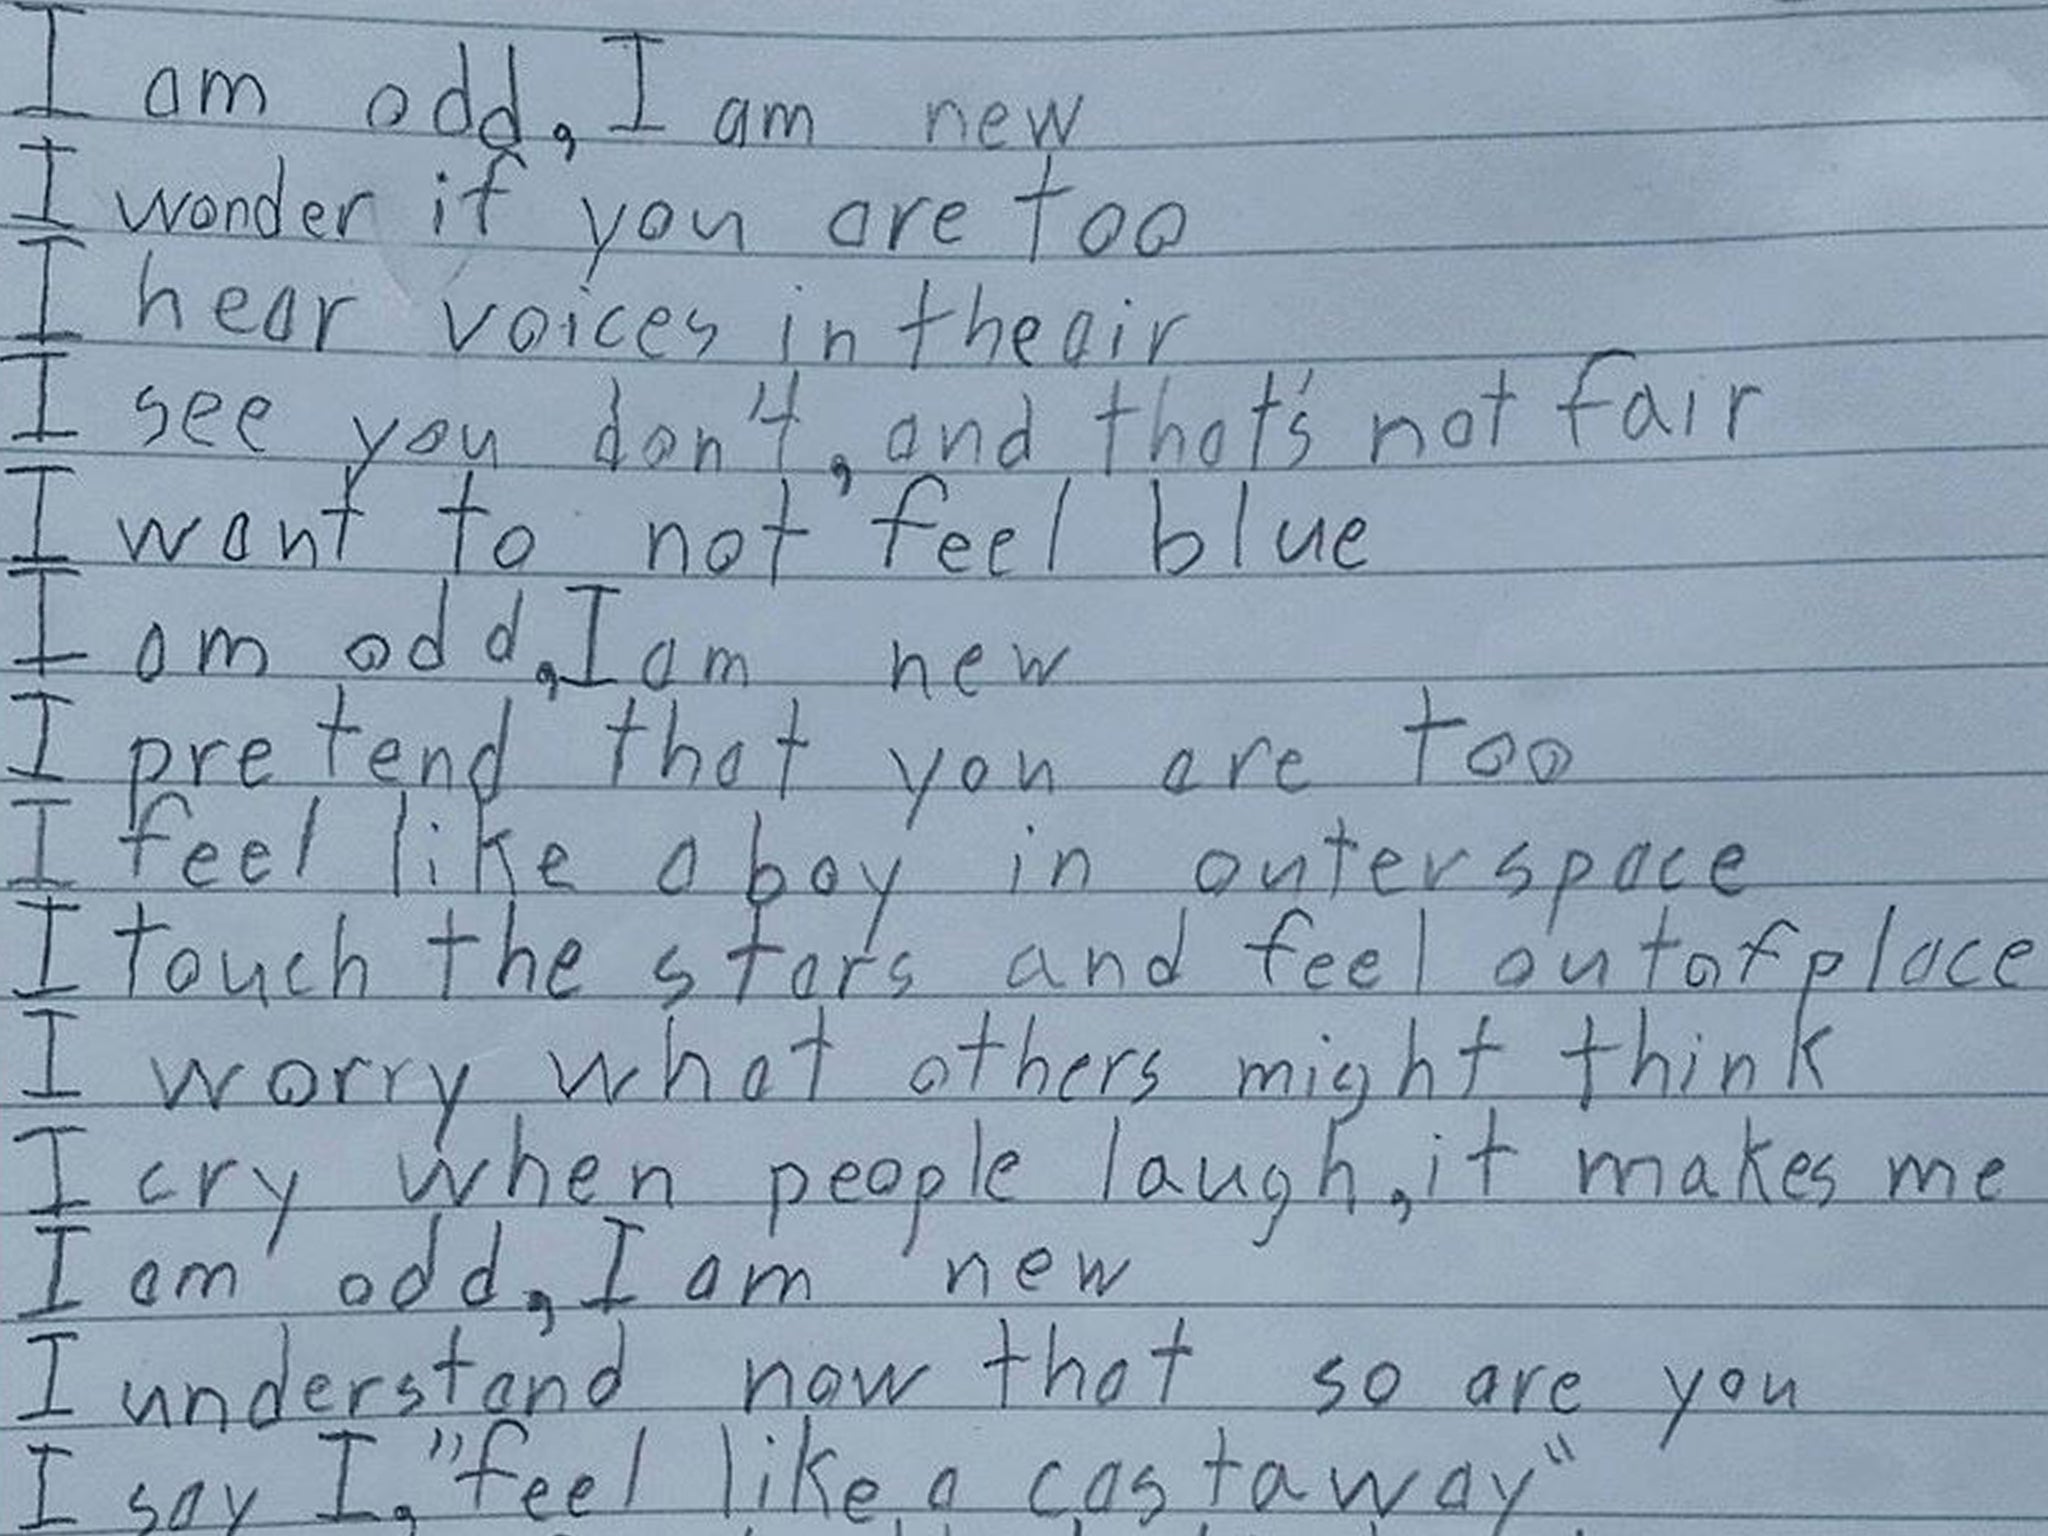 I am odd, I am new
I wonder if you are too
I hear voices in the air
I see you don't, and that's not fair
I want to not feel blue
I am odd, I am new
I pretend that you are too
I feel like a boy in outerspace
I touch the stars and feel out of place
I worry what others might think
I cry when people laugh, it makes me
I am odd, I am new
I understand now that so are you
I say I, "feel like a castaway"